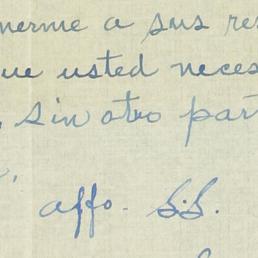 nerme a sus res
ue usted neces
, sin otro part
affo. S.S.